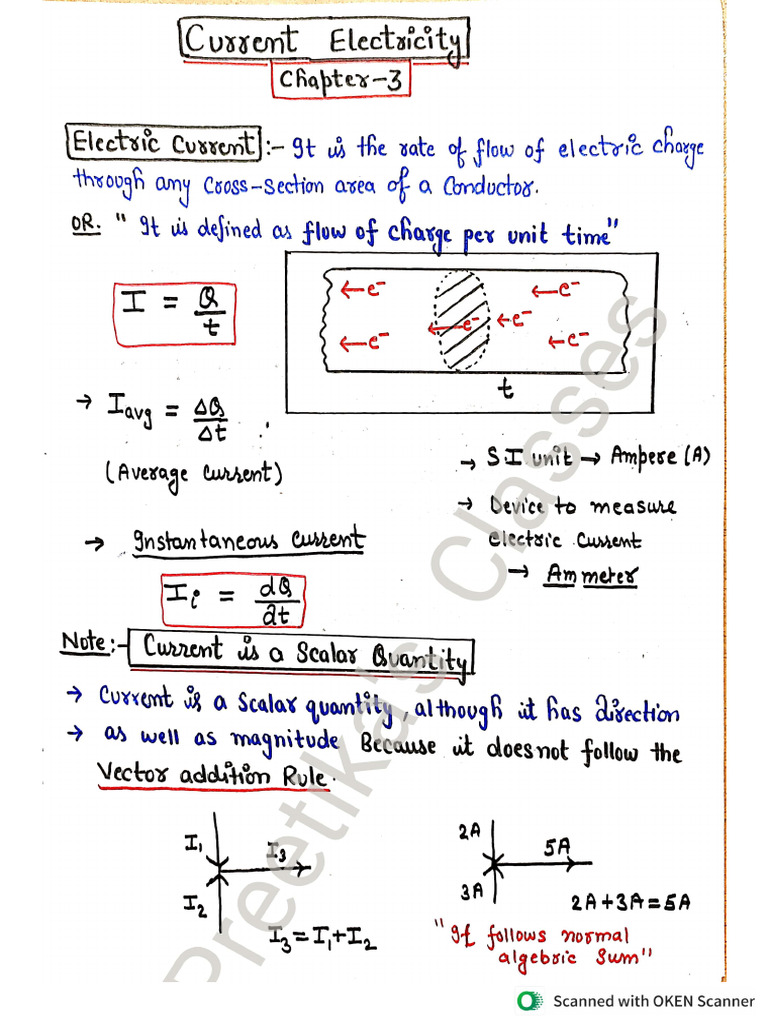 Current Electricity
Chapter-3
Electric Current :- It is the rate of flow of electric charge
through any cross-section area of a Conductor.
OR. " It is defined as flow of charge per unit time"
I = Q/t
← e⁻ ← e⁻
← e⁻ ← e⁻
← e⁻ ← e⁻
t
→ I avg = ΔQ/Δt
(Average current)
→ S.I unit → Ampere (A)
→ Device to measure
electric current
→ Ammeter
→ Instantaneous current
I i = dQ/dt
Note:- Current is a Scalar Quantity
→ Current is a scalar quantity, although it has direction
→ as well as magnitude Because it does not follow the
Vector addition Rule.
I₁
I₃
I₂
I₃ = I₁ + I₂
2A
5A
3A
2A + 3A = 5A
"It follows normal
algebric sum"
Preetika's Classes
Scanned with OKEN Scanner